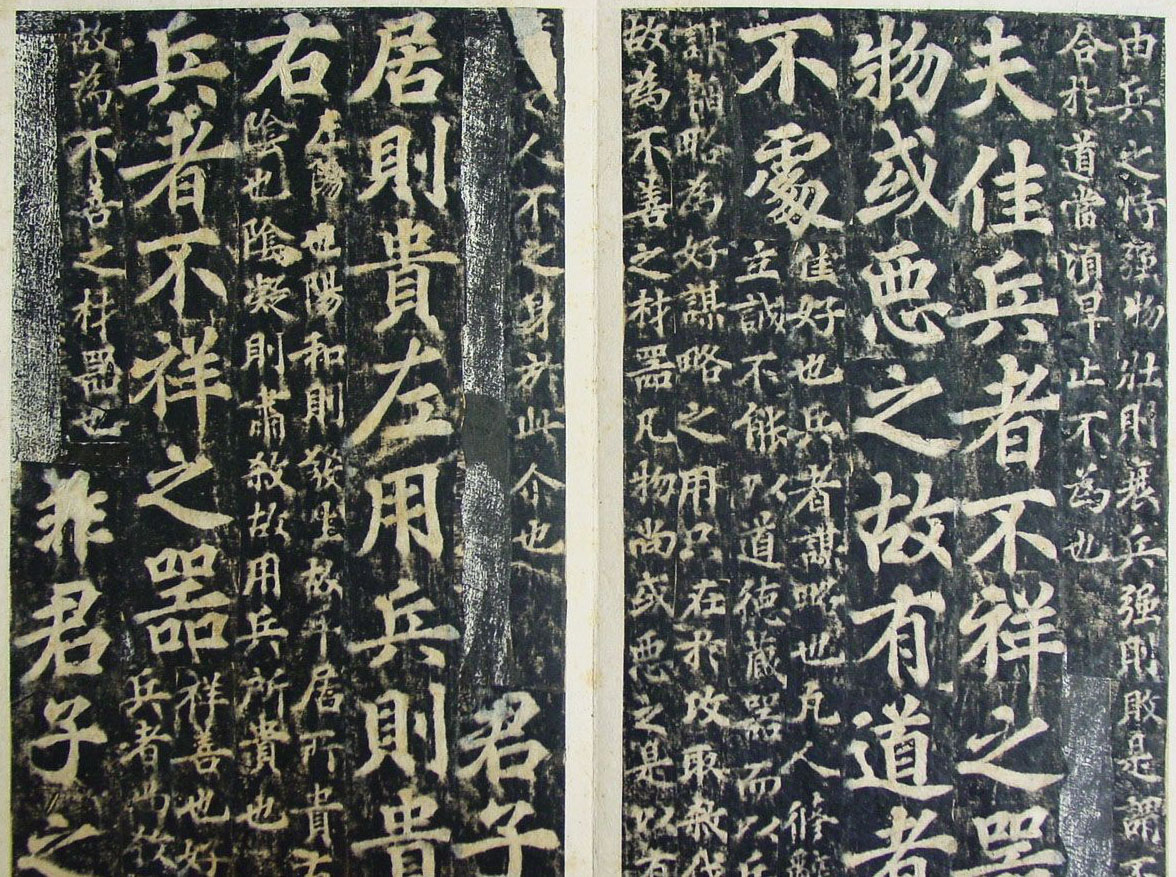 由兵之恃强物壯則衰兵强則敗是謂不
合於道當須早止不為也
夫佳兵者不祥之器
物或惡之故有道者
不處
佳好也兵者謀略也凡人修辭
立誠不能以道德藏器而以兵
韜略為好謀略之用只在於攻取殺伐
故為不善之材器凡物尚或惡之是以有
之人不之身於此尒也
君子
居則貴左用兵則貴
右
左陽也陽和則發生故平居所貴右
陰也陰凝則肅殺故用兵所貴也
兵者不祥之器
祥善也好
兵者尚
故為不善之材器也
非君子之